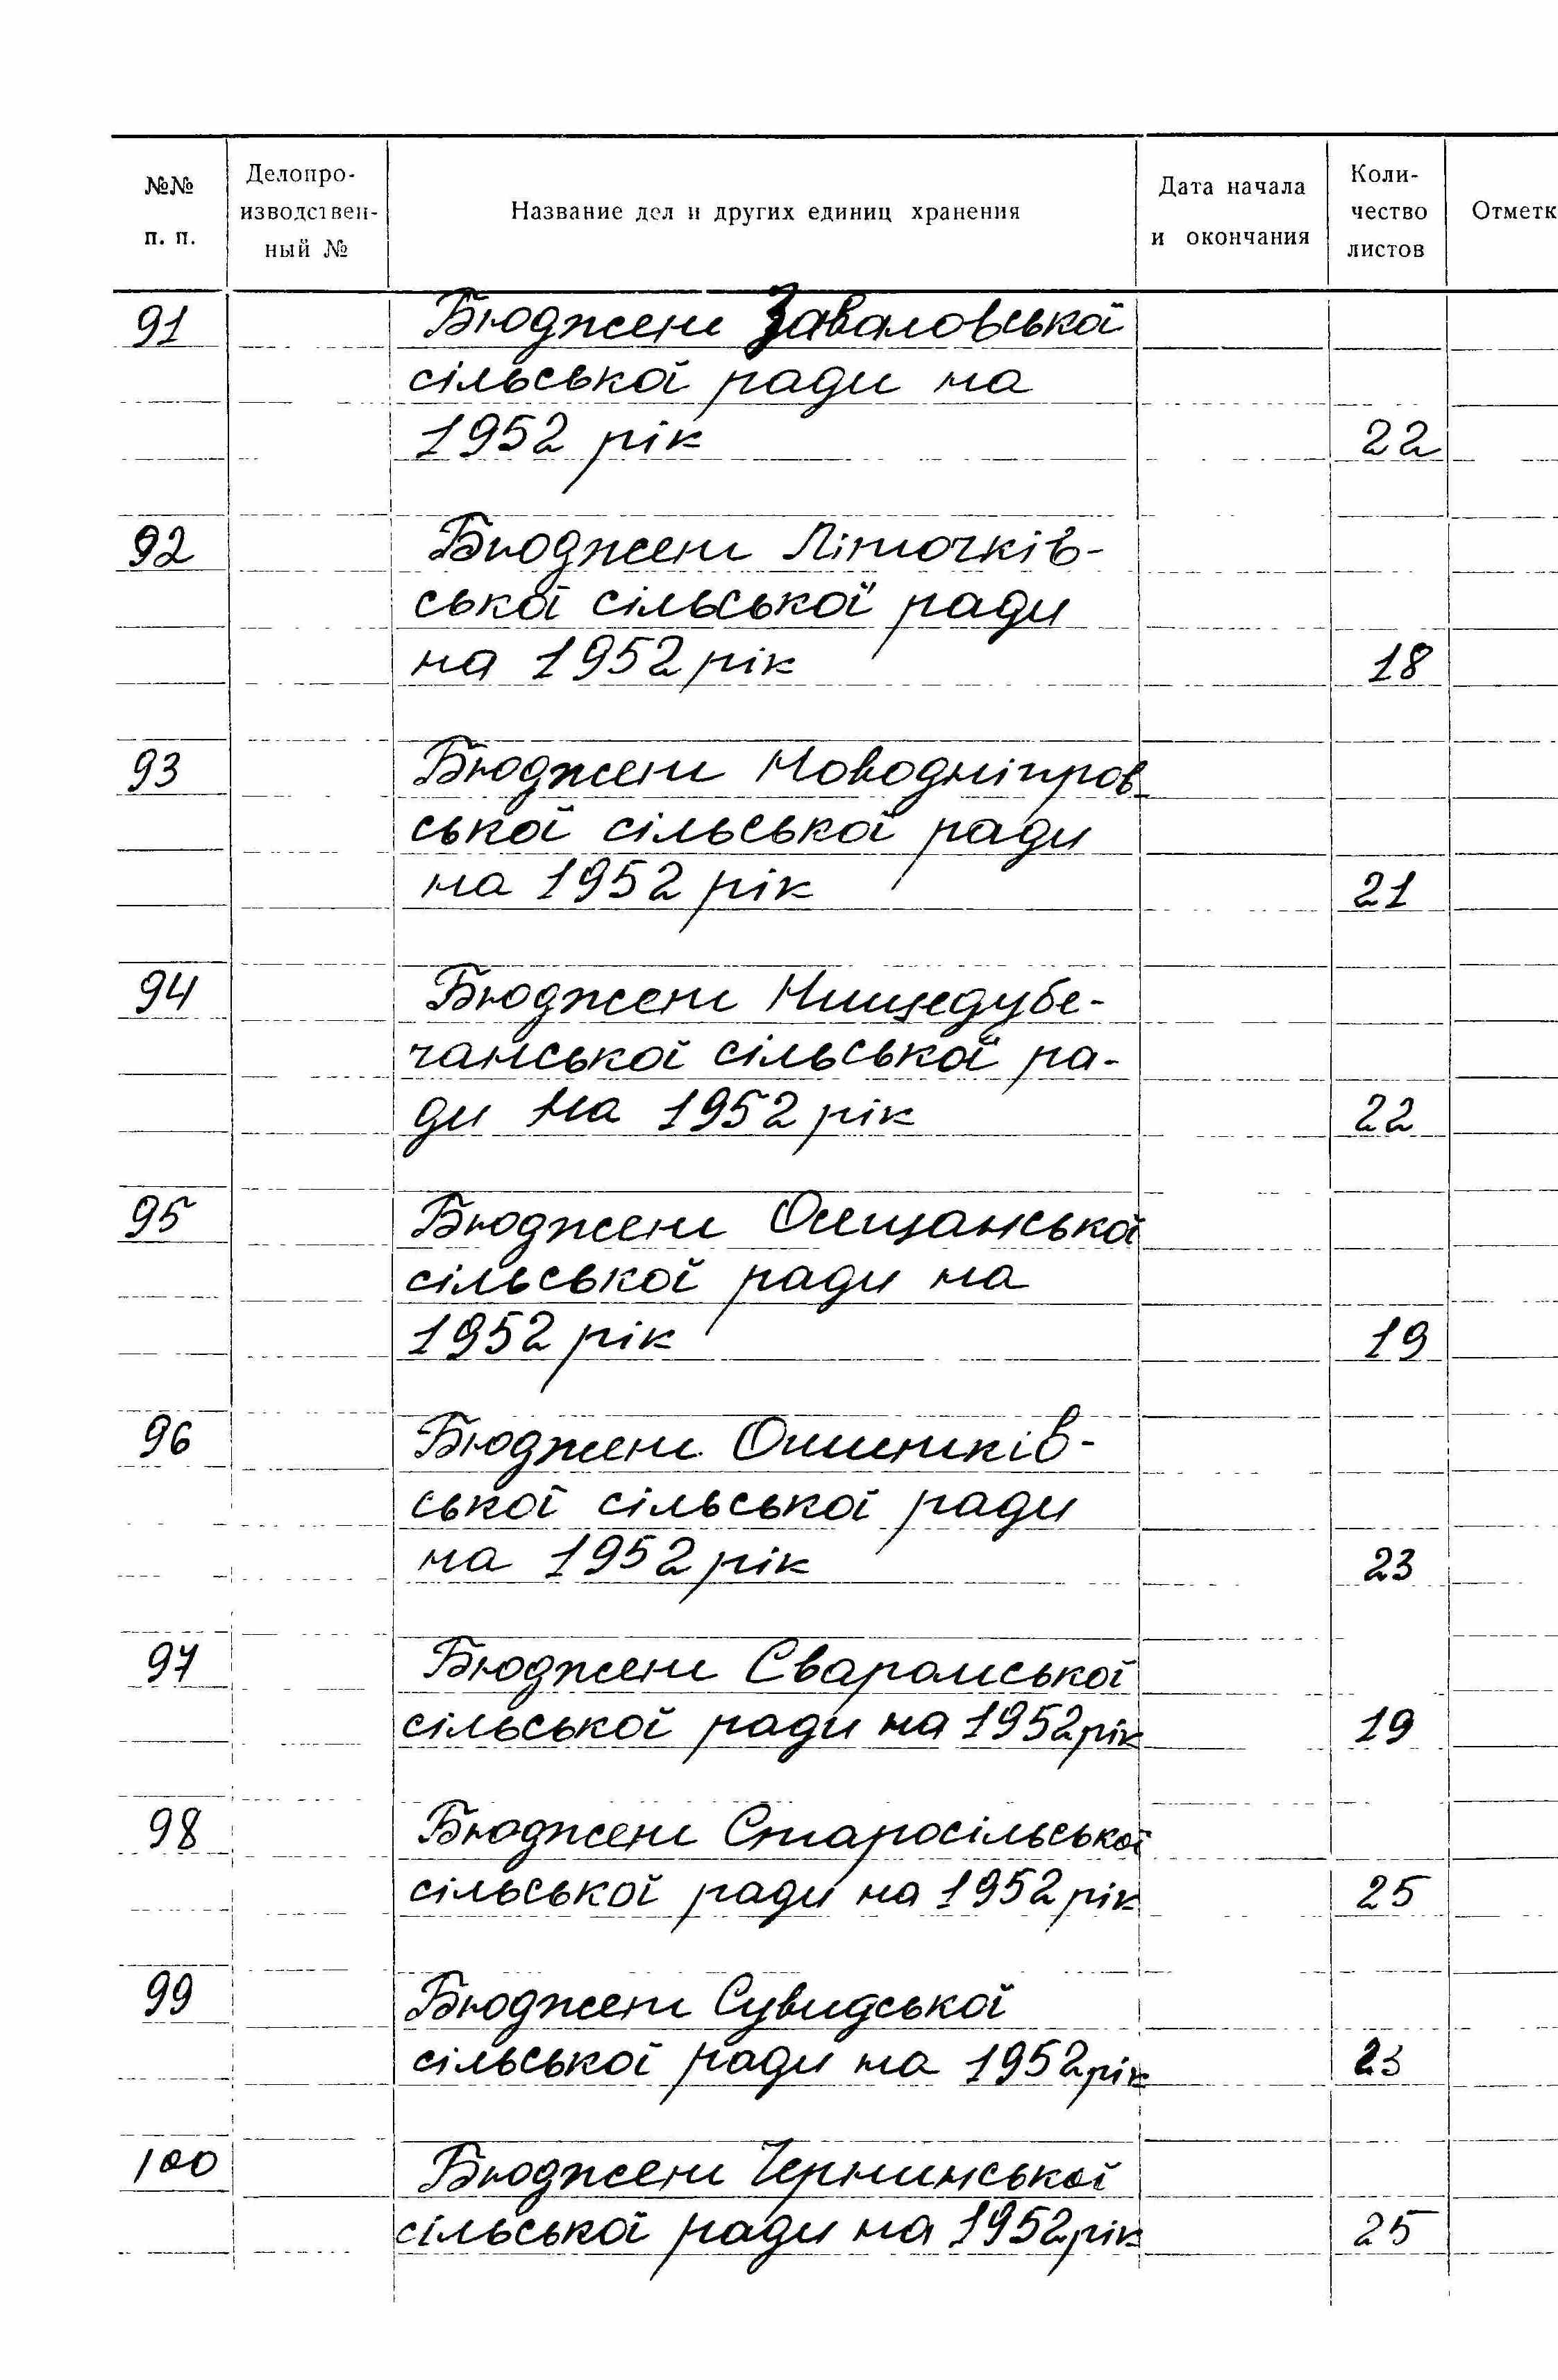 №№ п. п.
Делопро-
изводствен-
ный №
Название дел и других единиц хранения
Дата начала
и окончания
Коли-
чество
листов
Отметк
91 Бюджет Заваловської
сільської ради на
1952 рік 22
92 Бюджет Літочків-
ської сільської ради
на 1952 рік 18
93 Бюджет Новодніпров-
ської сільської ради
на 1952 рік 21
94 Бюджет Нищедубе-
чанської сільської ра-
ди на 1952 рік 22
95 Бюджет Ощещанської
сільської ради на
1952 рік 19
96 Бюджет Ошитків-
ської сільської ради
на 1952 рік 23
97 Бюджет Сваромської
сільської ради на 1952 рік 19
98 Бюджет Старосільської
сільської ради на 1952 рік 25
99 Бюджет Сувидської
сільської ради на 1952 рік 23
100 Бюджет Чернинської
сільської ради на 1952 рік 25